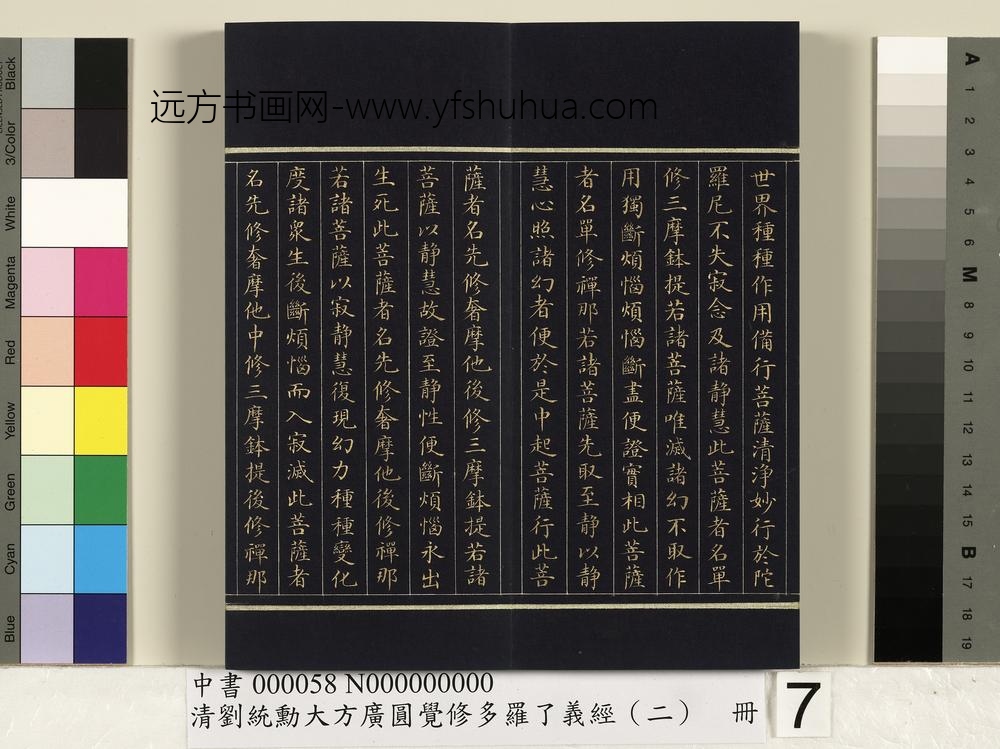 远方书画网-www.yfshuhua.com
世界種種作用備行菩薩清淨妙行於陀
羅尼不失寂念及諸静慧此菩薩者名單
修三摩鉢提若諸菩薩唯滅諸幻不取作
用獨斷煩惱煩惱斷盡便證實相此菩薩
者名單修禪那若諸菩薩先取至静以静
慧心照諸幻者便於是中起菩薩行此菩
薩者名先修奢摩他後修三摩鉢提若諸
菩薩以静慧故證至静性便斷煩惱永出
生死此菩薩者名先修奢摩他後修禪那
若諸菩薩以寂静慧復現幻力種種變化
度諸衆生後斷煩惱而入寂滅此菩薩者
名先修奢摩他中修三摩鉢提後修禪那
Black
3/Color
White
Magenta
Red
Yellow
Green
Cyan
Blue
A
1
2
3
4
5
6
M
8
9
10
11
12
13
14
15
B
17
18
19
中書 000058 N000000000
清劉統勳大方廣圓覺修多羅了義經（二） 冊
7